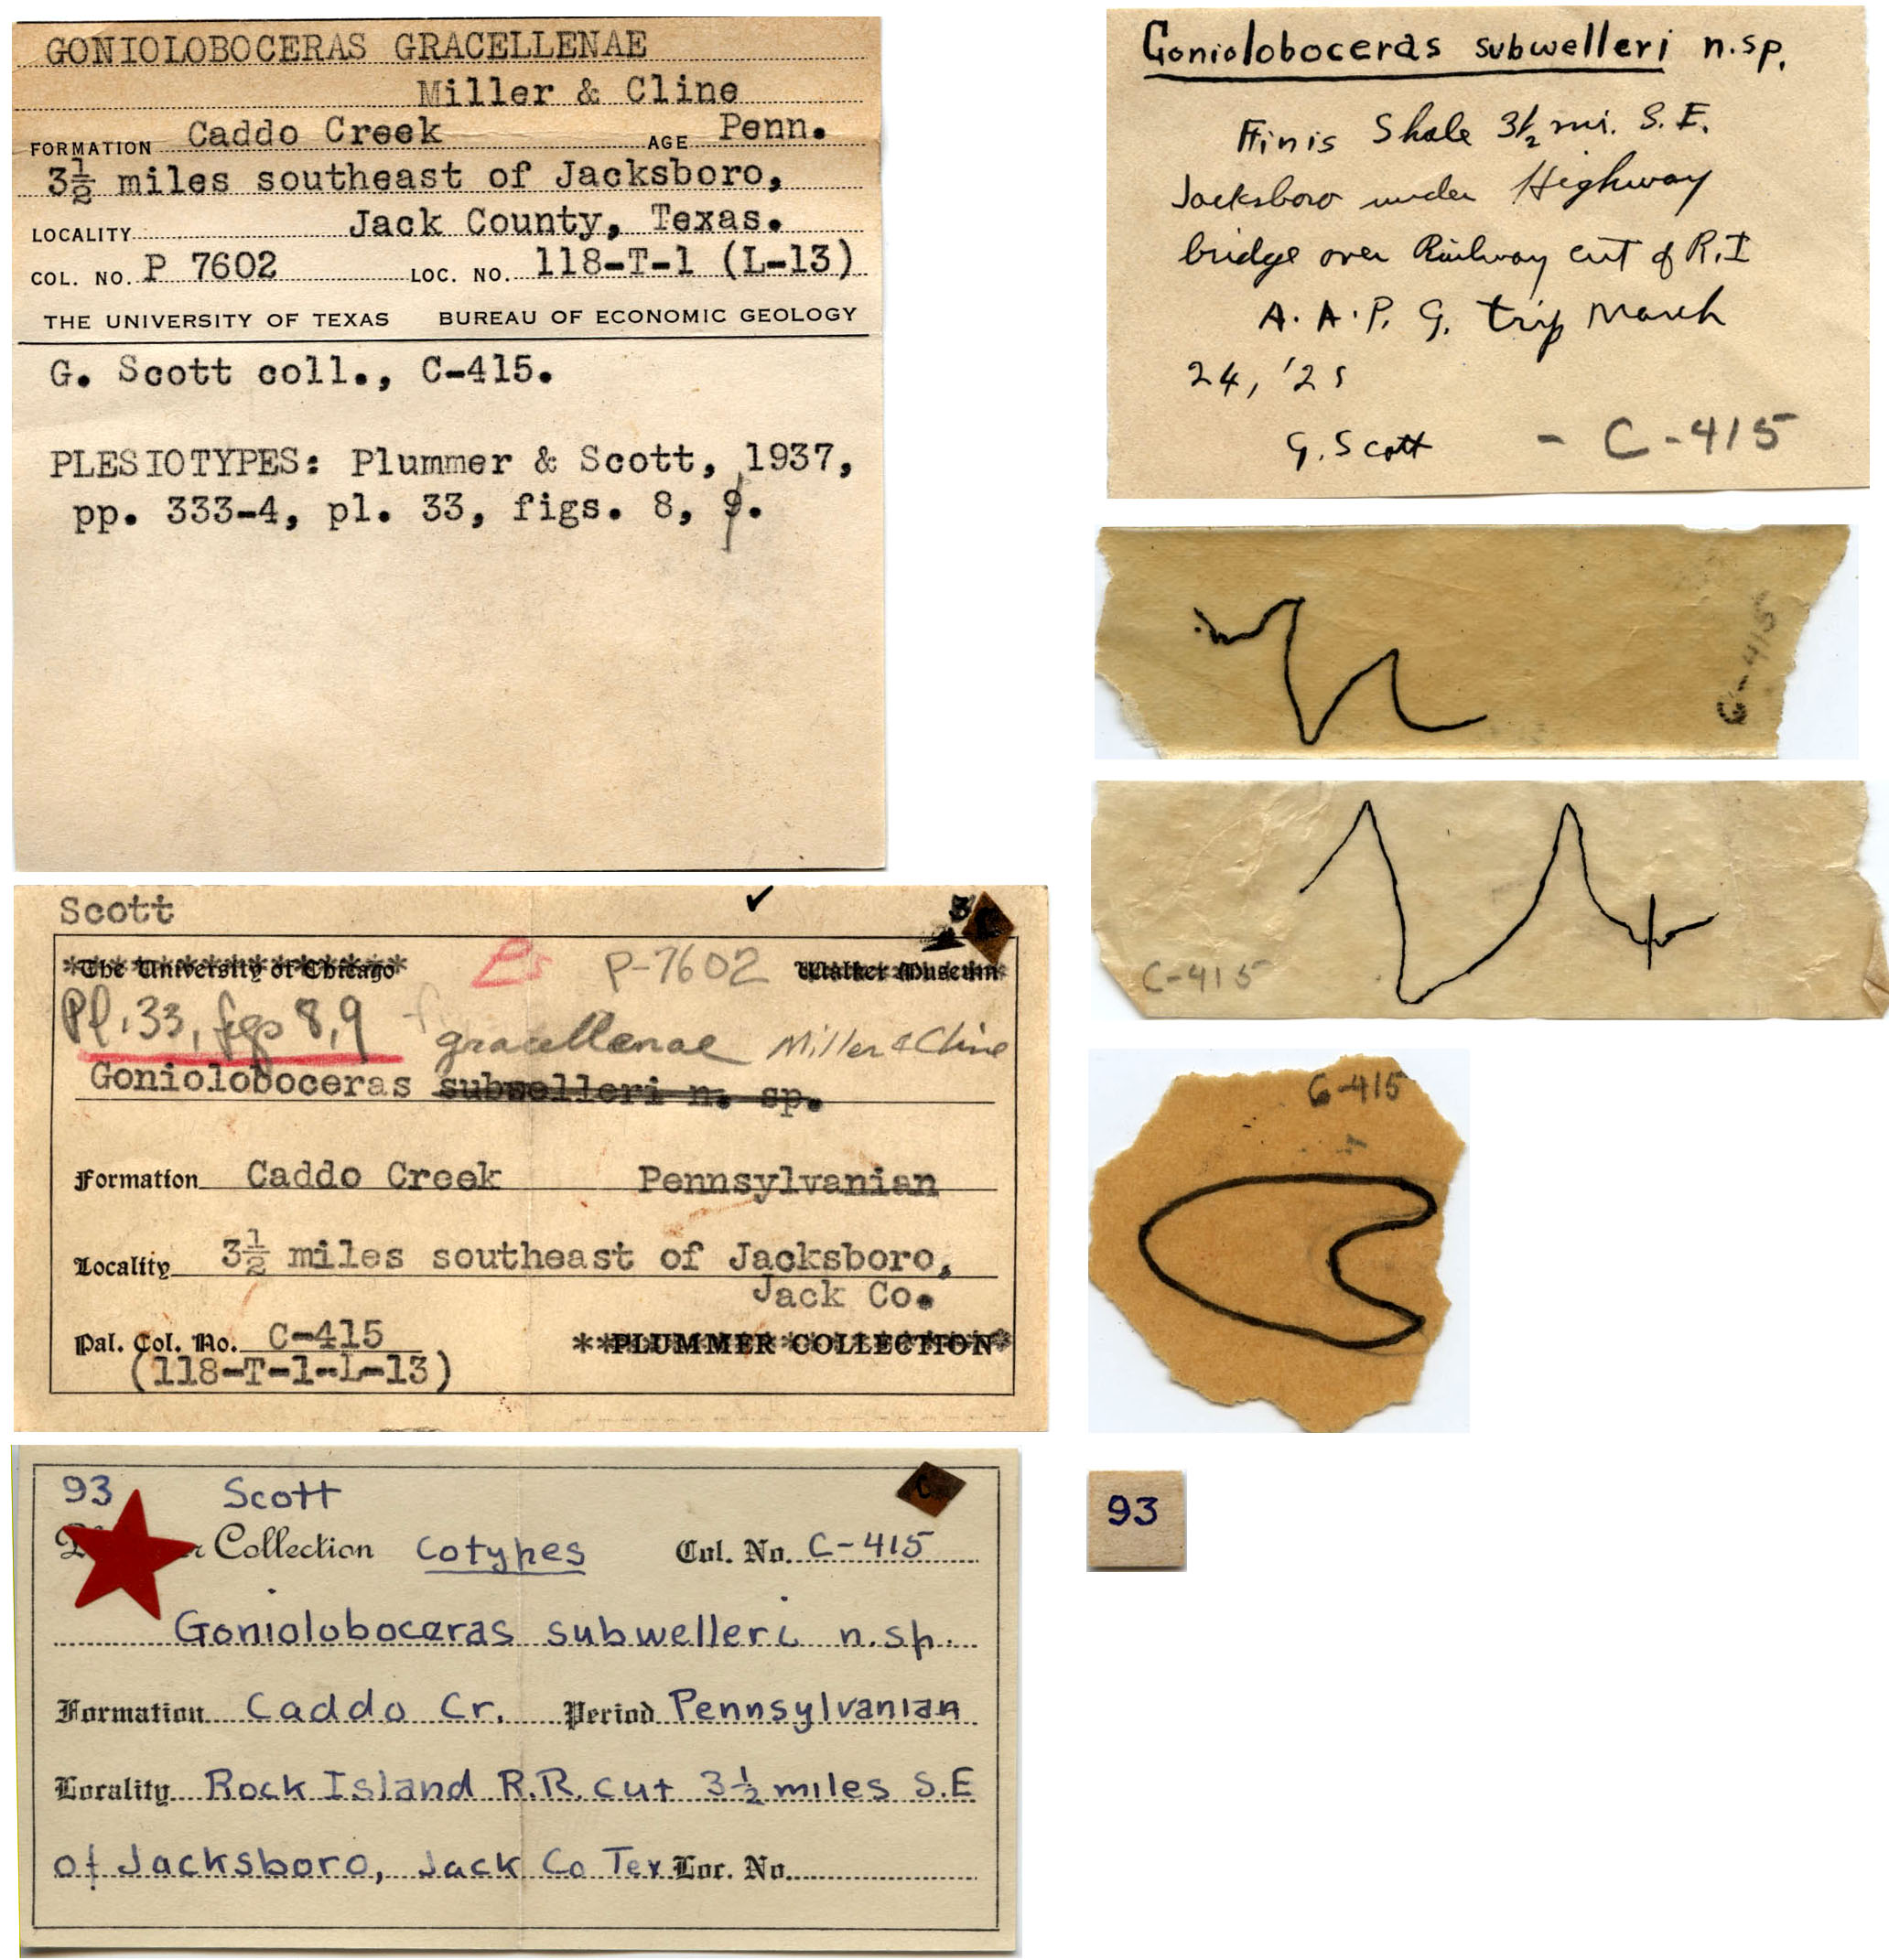 GONIOLOBOCERAS GRACELLENAE
Miller & Cline
FORMATION Caddo Creek AGE Penn.
3½ miles southeast of Jacksboro,
LOCALITY Jack County, Texas.
COL. NO. P 7602 LOC. NO. 118-T-1 (L-13)
THE UNIVERSITY OF TEXAS BUREAU OF ECONOMIC GEOLOGY
G. Scott coll., C-415.
PLESIOTYPES: Plummer & Scott, 1937,
pp. 333-4, pl. 33, figs. 8, 9.
Scott
The University of Chicago P-7602 Walker Museum
Pl. 33, figs 8,9 gracellenae Miller & Cline
Gonioloboceras subwelleri n. sp.
Formation Caddo Creek Pennsylvanian
Locality 3½ miles southeast of Jacksboro,
Jack Co.
Pal. Col. No. C-415 **PLUMMER COLLECTION*
(118-T-1-L-13)
93 Scott
Collection Cotypes Col. No. C-415
Gonioloboceras subwelleri n.sp.
Formation Caddo Cr. Period Pennsylvanian
Locality Rock Island R.R. cut 3½ miles S.E
of Jacksboro, Jack Co Tex Loc. No.
Gonioloboceras subwelleri n.sp.
Finis Shale 3½ mi. S.E.
Jacksboro under Highway
bridge over Railway cut of R.I
A.A.P.G. trip March
24, '25
G. Scott - C-415
C-415
C-415
C-415
93